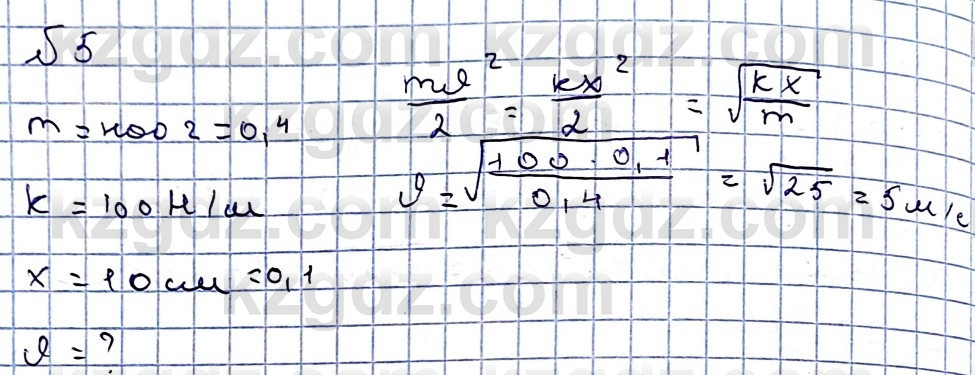 №5
m = 400 г = 0,4
k = 100 Н/м
x = 10 см = 0,1
υ = ?
mυ²/2 = kx²/2 = √(kx/m)
υ = √(100 · 0,1/0,4) = √25 = 5 м/с
kzgdz.com kzgdz.com
kzgdz.com kzgdz.com
kzgdz.com